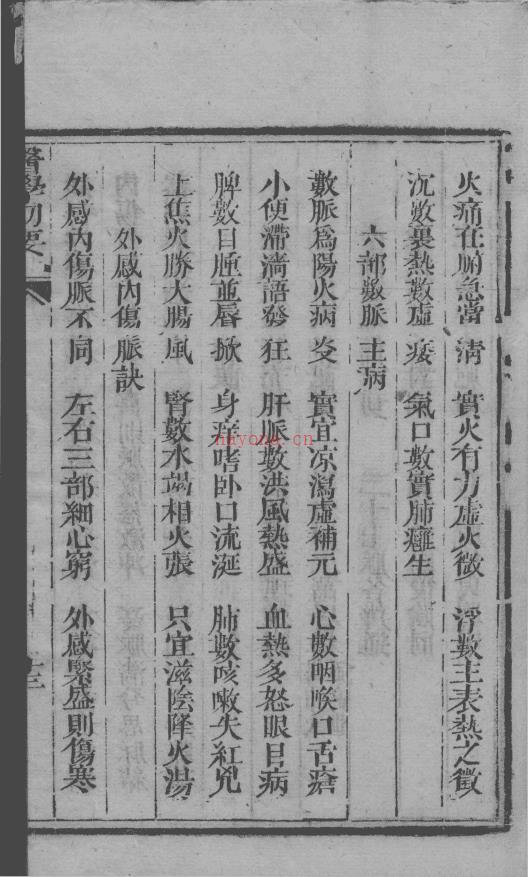 火痛在腑急當清 實火有力虛火微 浮數主表熱之徵
沉數裏熱數虛痿 氣口數實肺癰生
六部數脈主病
數脈爲陽火病炎 實宜凉瀉虛補元 心數咽喉口舌瘡
小便滯濇語發狂 肝脈數洪風熱盛 血熱多怒眼目病
脾數目腫並唇掀 身痒嗜卧口流涎 肺數咳嗽失紅兇
上焦火勝大腸風 腎數水竭相火張 只宜滋陰降火湯
外感內傷脈訣
外感內傷脈不同 左右三部細心窮 外感緊盛則傷寒
醫學切要
十三
nayona.cn